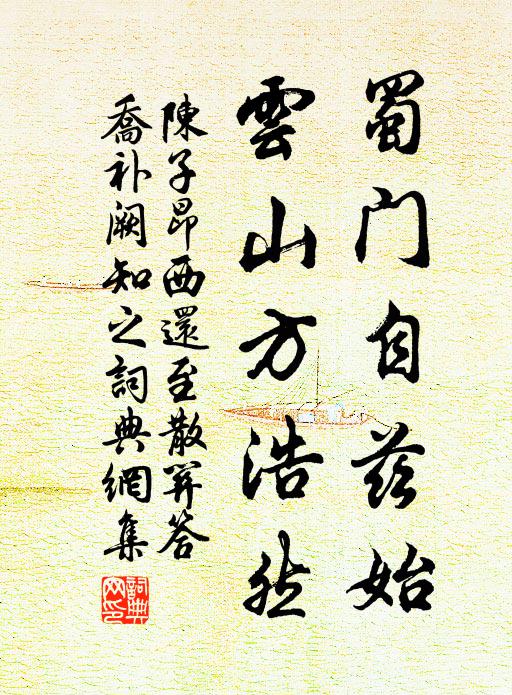 蜀门自茲始
雲山方浩然
陳子昂西還至散關答
喬补阙知之詞典網集
詞典網印